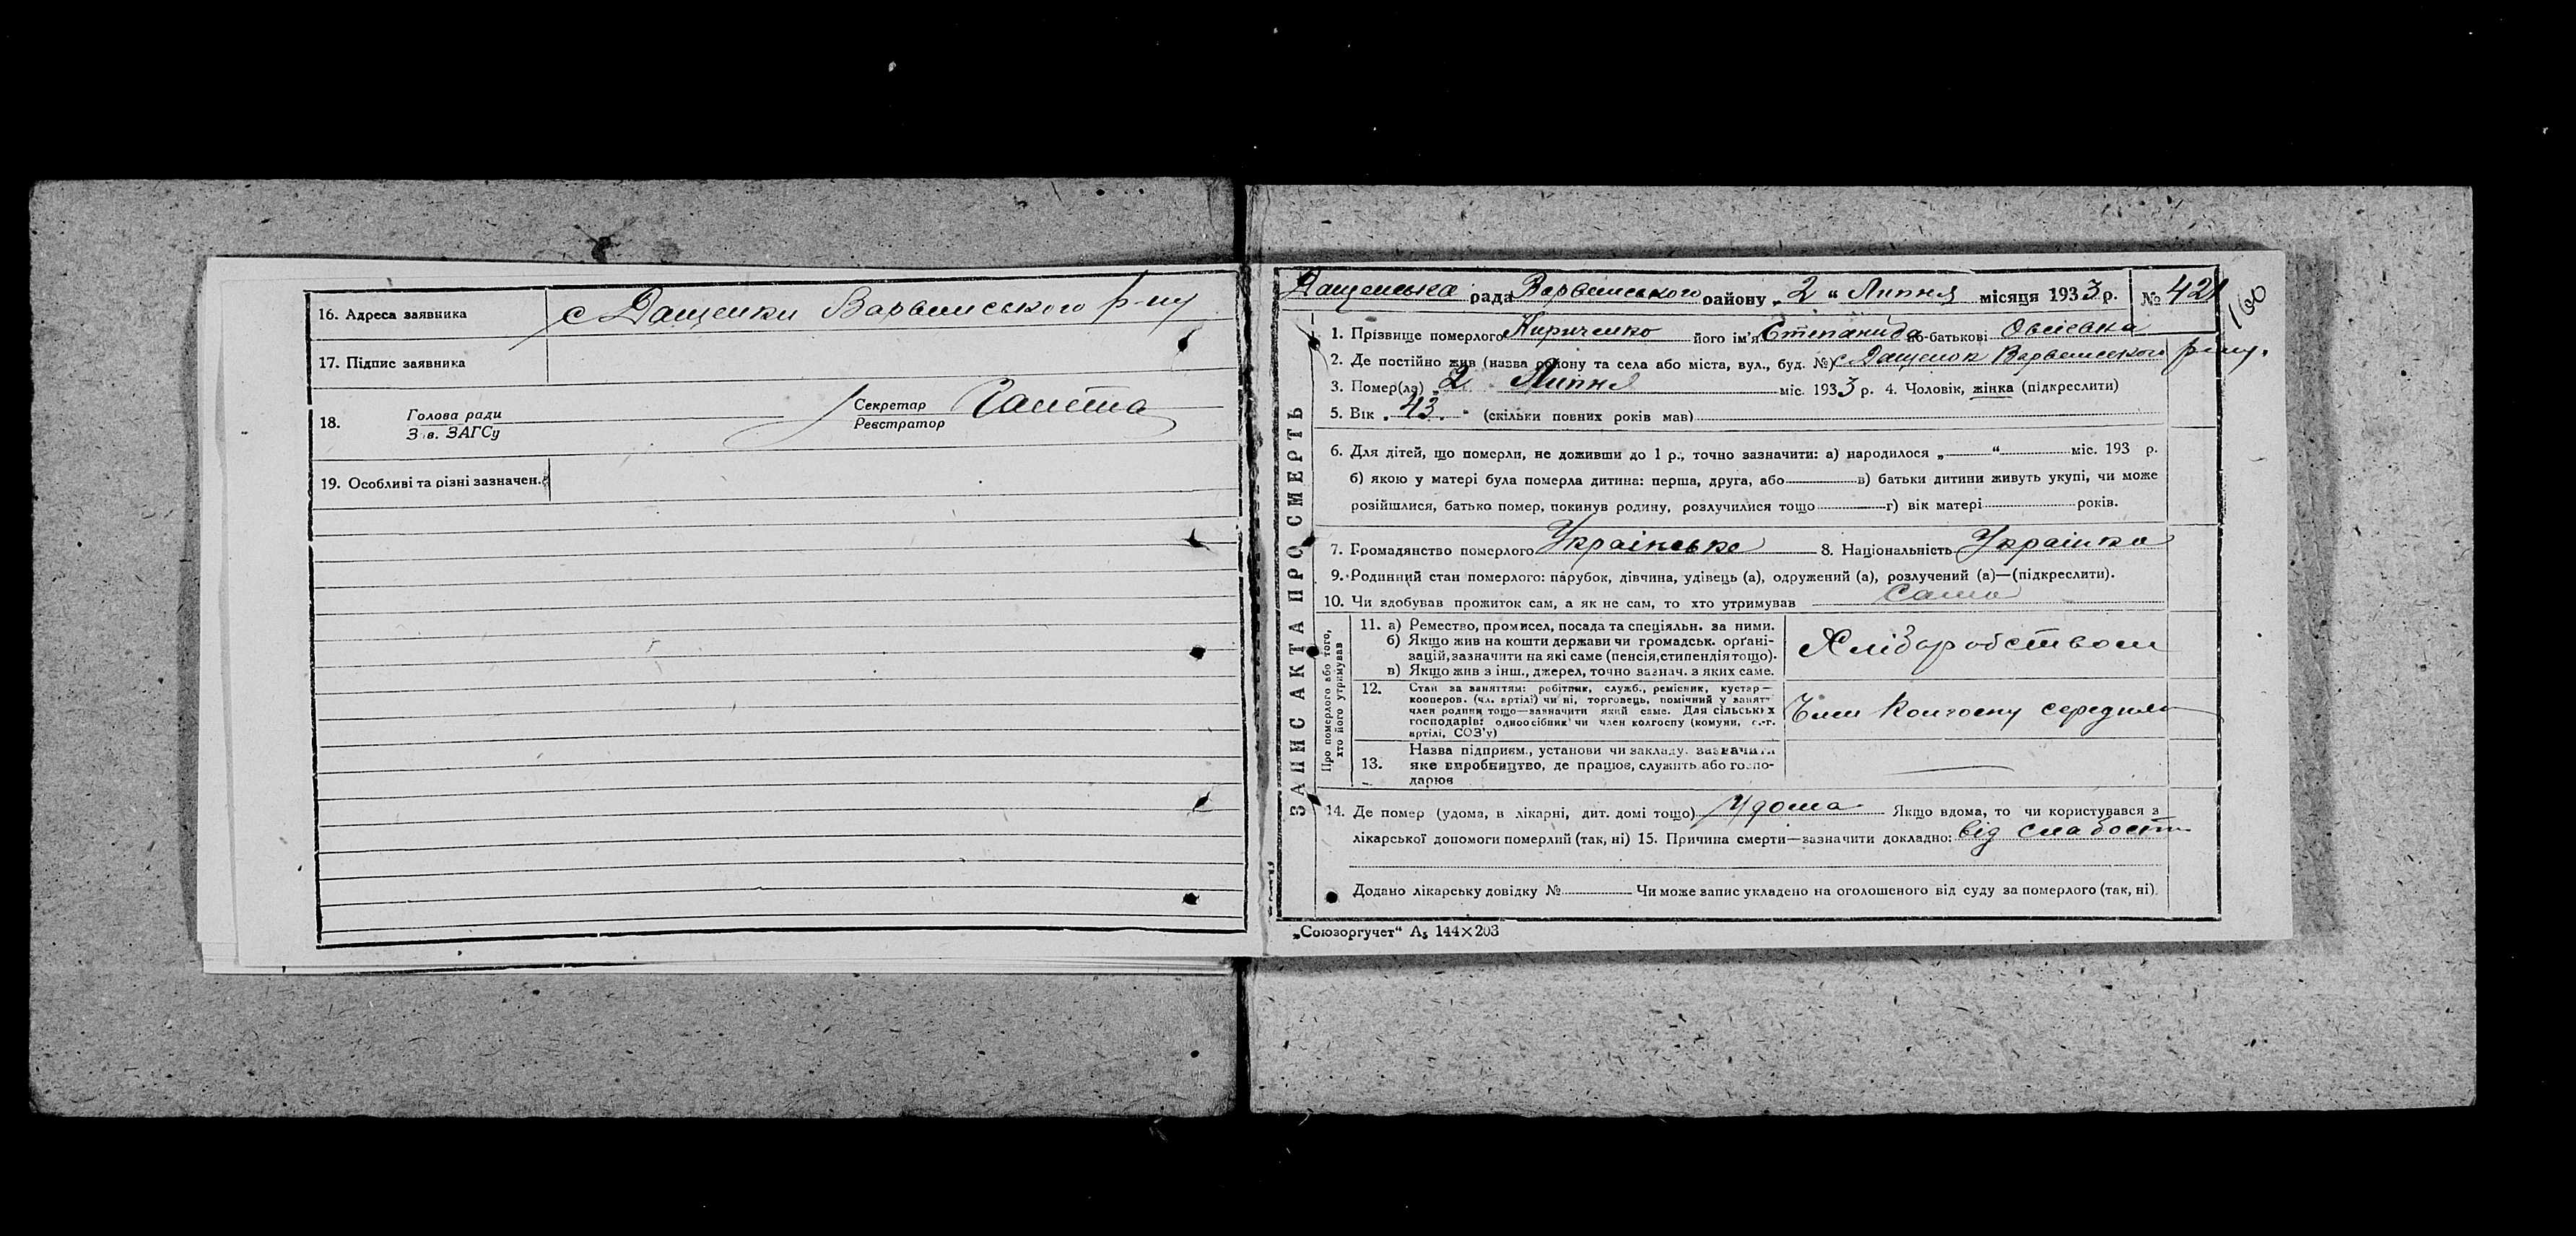 16. Адреса заявника с Дащенки Варвинського р-ну
17. Підпис заявника
18. Голова ради Секретар
З в. ЗАГСу Реєстратор
19. Особливі та різні зазначен.
Дащенська рада Варвинського району „ 2 “ Липня місяця 1933 р. № 421
160
ЗАПИС АКТА ПРО СМЕРТЬ
1. Прізвище померлого Кириченко його ім'я Степанида по-батькові Овсіевна
2. Де постійно жив (назва району та села або міста, вул., буд. №) с Дащенок Варвинського р-ну.
3. Помер(ла) „ 2 Липня міс. 1933 р. 4. Чоловік, жінка (підкреслити)
5. Вік „ 43 “ (скільки повних років мав)
6. Для дітей, що померли, не доживши до 1 р., точно зазначити: а) народилося „ “ міс. 193 р.
б) якою у матері була померла дитина: перша, друга, або в) батьки дитини живуть укупі, чи може
розійшлися, батько помер, покинув родину, розлучилися тощо г) вік матері років.
7. Громадянство померлого Українське 8. Національність Українка
9. Родинний стан померлого: парубок, дівчина, удівець (а), одружений (а), розлучений (а)—(підкреслити).
10. Чи здобував прожиток сам, а як не сам, то хто утримував Сама
Про померлого або того, хто його утримував
11. а) Ремество, промисел, посада та спеціяльн. за ними.
б) Якщо жив на кошти держави чи громадськ. орґані-
зацій, зазначити на які саме (пенсія, стипендія тощо).
в) Якщо жив з інш., джерел, точно зазнач. з яких саме.
Хліборобством
12. Стан за заняттям: робітник, служб., ремісник, кустар—
кооперов. (чл. артілі) чи ні, торговець, помічний у занят.
член родини тощо—зазначити який саме. Для сільських
господарів: одноосібник чи член колгоспу (комуни, с.-г.
артілі, СОЗ'у)
Член Колгоспу середняк
13. Назва підприєм., установи чи закладу. зазначити
яке виробництво, де працює, служить або госпо-
дарює
14. Де помер (удома, в лікарні, дит. домі тощо) Удома Якщо вдома, то чи користувався з
лікарської допомоги померлий (так, ні) 15. Причина смерти—зазначити докладно: від слабости
Додано лікарську довідку № Чи може запис укладено на оголошеного від суду за померлого (так, ні).
„Союзоргучет“ А₅ 144×203